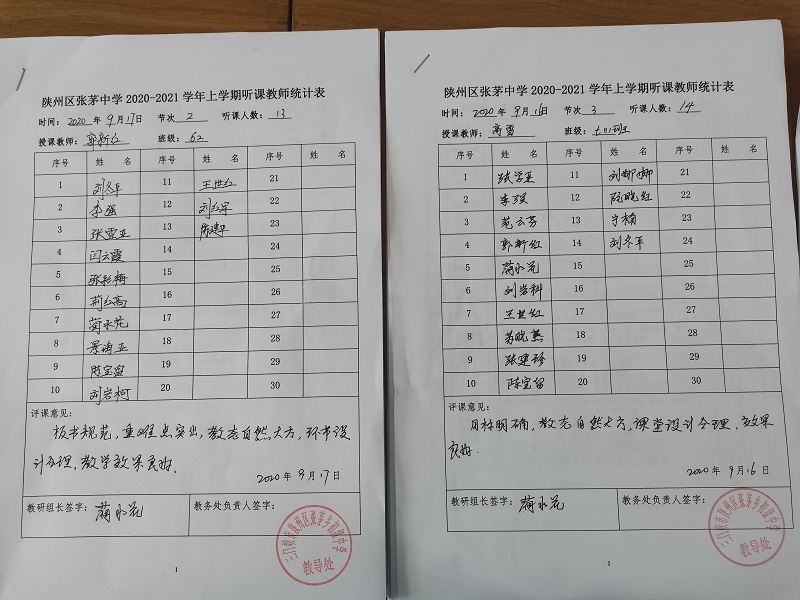 陕州区张茅中学 2020-2021 学年上学期听课教师统计表
时间： 2020 年 9 月 17 日 节次 2 听课人数： 13
授课教师： 郭新红 班级： 62
序号 姓 名 序号 姓 名 序号 姓 名
1 刘冬平 11 王世红 21
2 李强 12 刘红军 22
3 张雪亚 13 陈建平 23
4 闫云霞 14 24
5 张彩梅 15 25
6 荆红高 16 26
7 蔺永花 17 27
8 景海亚 18 28
9 陈宝留 19 29
10 刘岩柯 20 30
评课意见：
板书规范，重难点突出，教态自然大方，环节设
计合理，教学效果良好。
2020 年 9 月 17 日
教研组长签字： 蔺永花 教务处负责人签字：
三门峡市陕州区张茅乡初级中学
教导处
1
陕州区张茅中学 2020-2021 学年上学期听课教师统计表
时间： 2020 年 9 月 16 日 节次 3 听课人数： 14
授课教师： 高雪 班级： 七(1)班
序号 姓 名 序号 姓 名 序号 姓 名
1 张雪亚 11 刘娜娜 21
2 李强 12 阮晓红 22
3 范云芬 13 宁楠 23
4 郭新红 14 刘冬平 24
5 蔺永花 15 25
6 刘岩科 16 26
7 王世红 17 27
8 苏晓燕 18 28
9 张建珍 19 29
10 陈宝留 20 30
评课意见：
目标明确，教态自然大方，课堂设计合理，效果
良好。
2020 年 9 月 16 日
教研组长签字： 蔺永花 教务处负责人签字：
三门峡市陕州区张茅乡初级中学
教导处
1